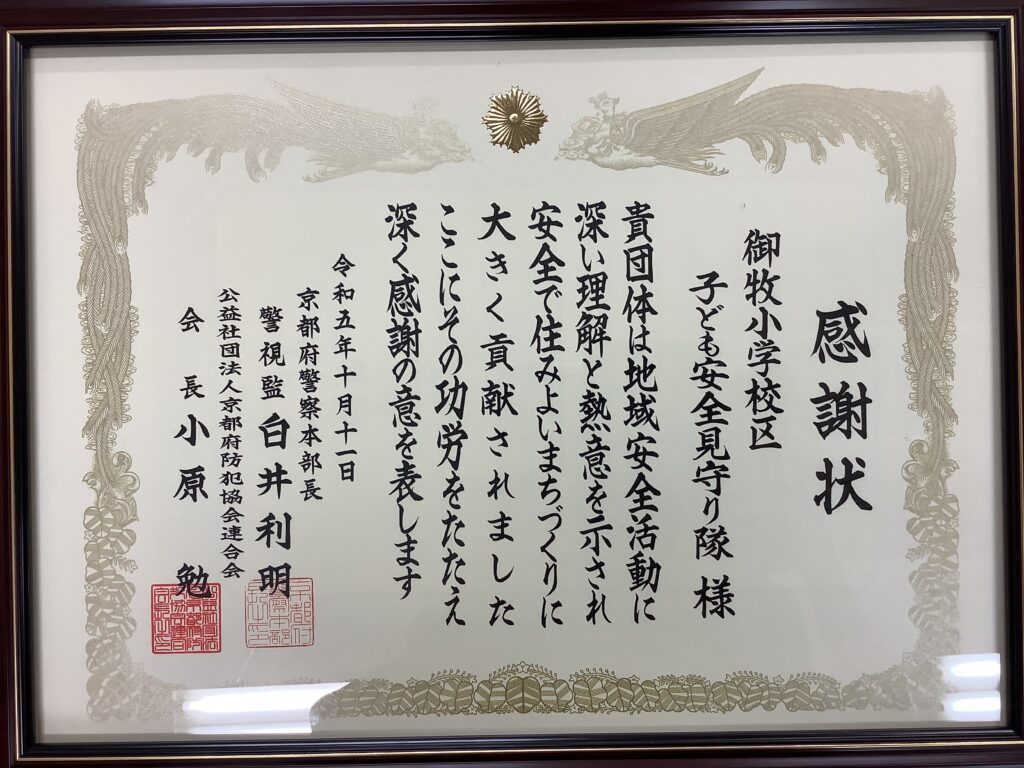 感謝状
御牧小学校区
子ども安全見守り隊 様
貴団体は地域安全活動に
深い理解と熱意を示され
安全で住みよいまちづくりに
大きく貢献されました
ここにその功労をたたえ
深く感謝の意を表します
令和五年十月十一日
京都府警察本部長
警視監 白井利明
公益社団法人京都府防犯協会連合会
会長 小原勉